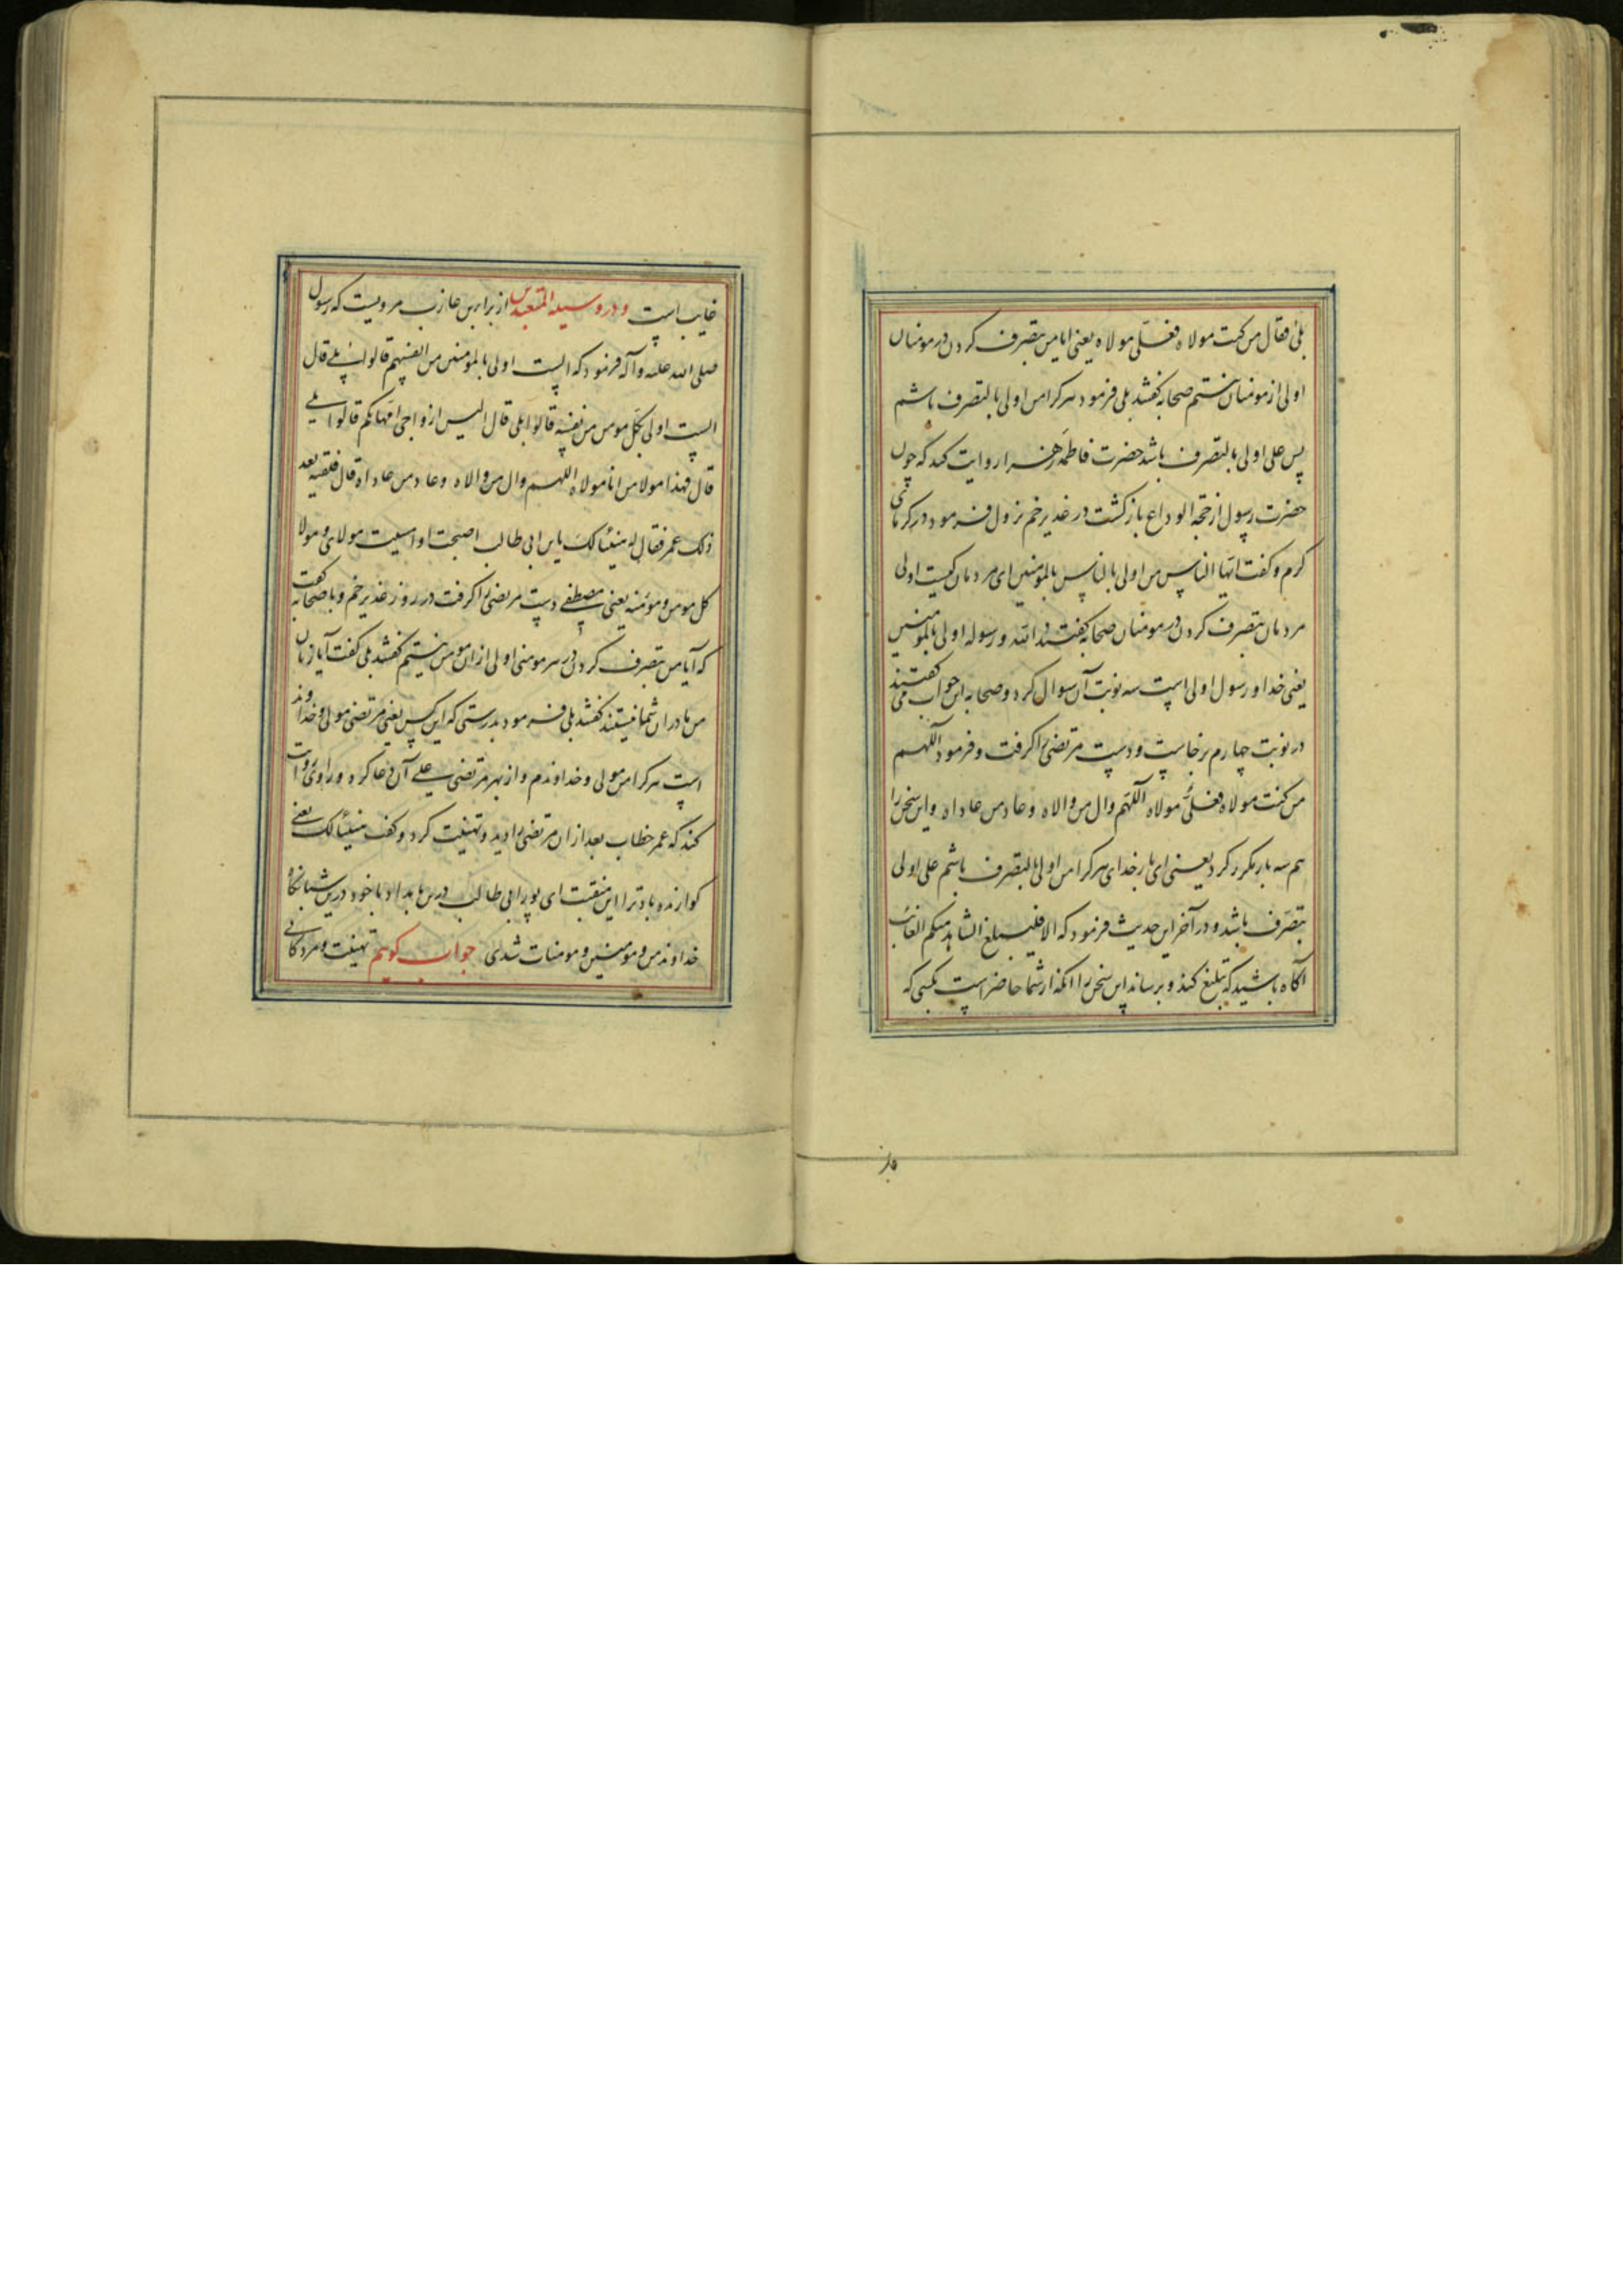 بلی فقال من کنت مولاه فعلی مولاه یعنی ایا من بتصرف کردن در مومنان
اولی از مومنان نیستم صحابه گفتند بلی فرمود هر کرا من اولی بالتصرف باشم
پس علی اولی بالتصرف باشد حضرت فاطمه زهرا روایت کند که چون
حضرت رسول از حجة الوداع بازگشت در غدیر خم نزول فرمود در گرمای
گرم و گفت ایها الناس من اولی بالناس بالمؤمنین ای مردمان کیست اولی
مردمان بتصرف کردن در مومنان صحابه گفتند الله و رسوله اولی بالمؤمنین
یعنی خدا و رسول اولی است سه نوبت آن سوال کرد و صحابه این جواب می گفتند
در نوبت چهارم برخاست و دست مرتضی را گرفت و فرمود اللهم
من کنت مولاه فعلی مولاه اللهم وال من والاه و عاد من عاداه و این سخن را
هم سه بار مکرر کرد یعنی ای بار خدای هر کرا من اولی بالتصرف باشم علی اولی
بتصرف باشد و در آخر این حدیث فرمود که الا فلیبلغ الشاهد منکم الغائب
آگاه باشید که تبلیغ کند و برساند این سخن را انکه از شما حاضر است بکسی که
غایب است و در وسیلة المتعبدین از براء بن عازب مرویست که رسول
صلی الله علیه و آله فرمود که الست اولی بالمؤمنین من انفسهم قالوا بلی قال
الست اولی بکل مومن من نفسه قالوا بلی قال الیس ازواجی امهاتکم قالوا بلی
قال فهذا مولا من انا مولاه اللهم وال من والاه و عاد من عاداه قال فلقیه بعد
ذلک عمر فقال له هنیئا لک یا بن ابی طالب اصبحت و امسیت مولای و مولا
کل مومن و مؤمنه یعنی مصطفی دست مرتضی را گرفت در روز غدیر خم و با صحابه گفت
که آیا من بتصرف کردن در هر مومنی اولی از ان مومن نیستم گفتند بلی گفت آیا زنان
من مادران شما نیستند گفتند بلی فرمود بدرستی که این کس یعنی مرتضی مولی و خداوند
است هر کرا من مولی و خداوندم و از بهر مرتضی علی آن دعا کرد و راوی روایت
کند که عمر خطاب بعد از ان مرتضی را دید و تهنیت کرد و گفت هنیئا لک یعنی
گوارنده باد ترا این منقبت ای پور ابی طالب درین بامداد با خود درین شبانگاه
خداوند من و مومنین و مومنات شدی جواب گویم تهنیت و مژدگانی